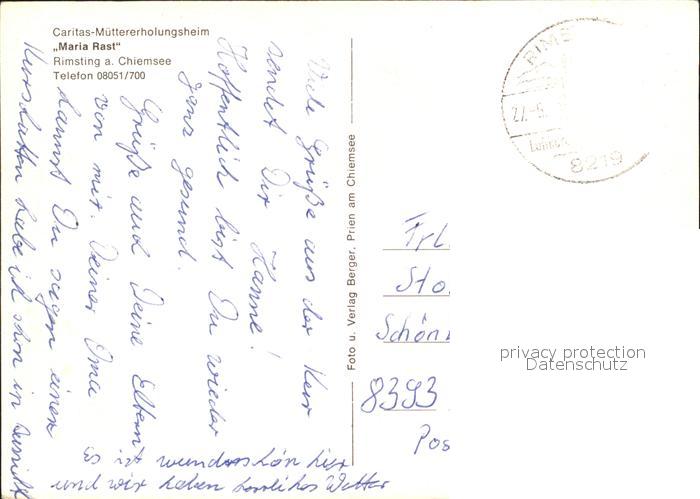 Caritas-Müttererholungsheim
„Maria Rast"
Rimsting a. Chiemsee
Telefon 08051/700
Viele Grüße aus der Kur
sendet Dir Hanne!
Hoffentlich bist Du wieder
ganz gesund.
Grüße auch Deine Eltern
von mir. Deiner Oma
kannst Du sagen einen
Kurschatten habe ich schon in
Es ist wunderschön hier
und wir haben herrliches Wetter
Foto u. Verlag Berger, Prien am Chiemsee
RIMS
27.-5.
8219
Frl.
Sto
Schön
8393
Pos
privacy protection
Datenschutz